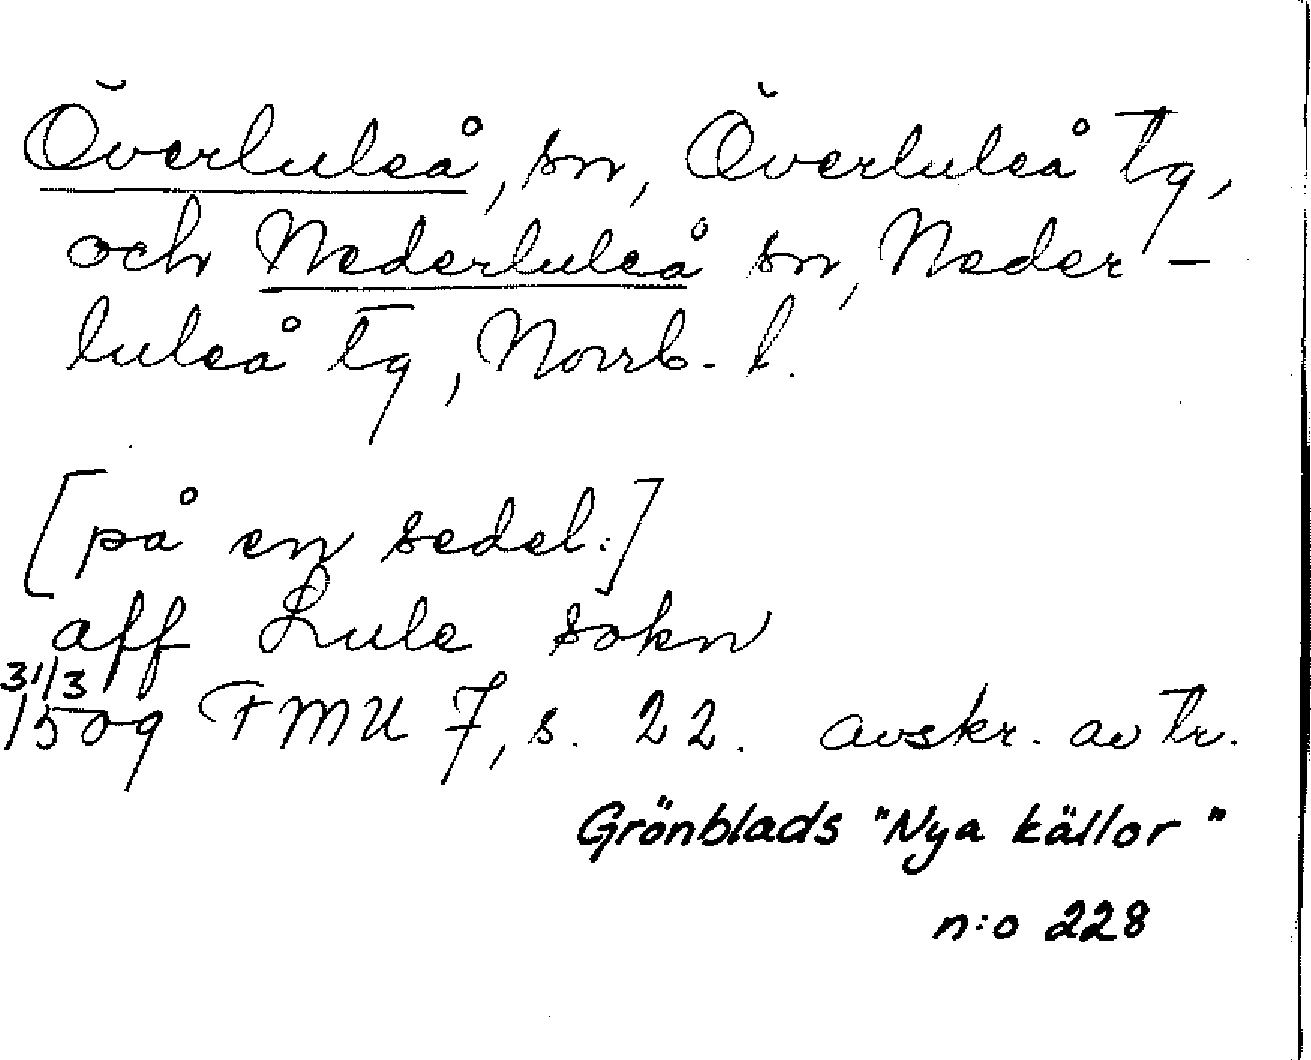 Överluleå, sn, Överluleå tg,
och Nederluleå sn, Neder-
luleå tg, Norrb. l.
[på en sedel:]
aff Lule sokn
31/3
1509 FMU 7, s. 22. avskr. av tr.
Grönblads "Nya källor"
n:o 228